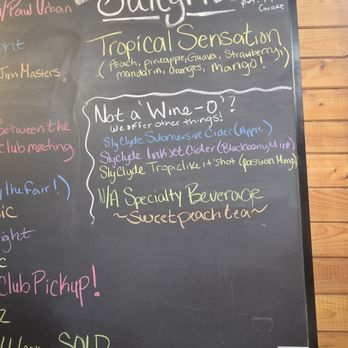 W/Paw Urban
Jim Masters
Between the
Club meeting
the Fair!)
ic
ight
c
Club Pickup!
z
SOLD
Tropical Sensation
(Peach, pineapple, Guava, Strawberry,
mandarin, Oranges, Mango!
Not a 'Wine-O'??
We offer other things!
SlyClyde Submersive Cider (Apple)
SlyClyde Inkjet Cider (Blackberry Mint)
SlyClyde Tropic like it's hot (passion Mang)
N/A Specialty Beverage
~Sweet peach tea~